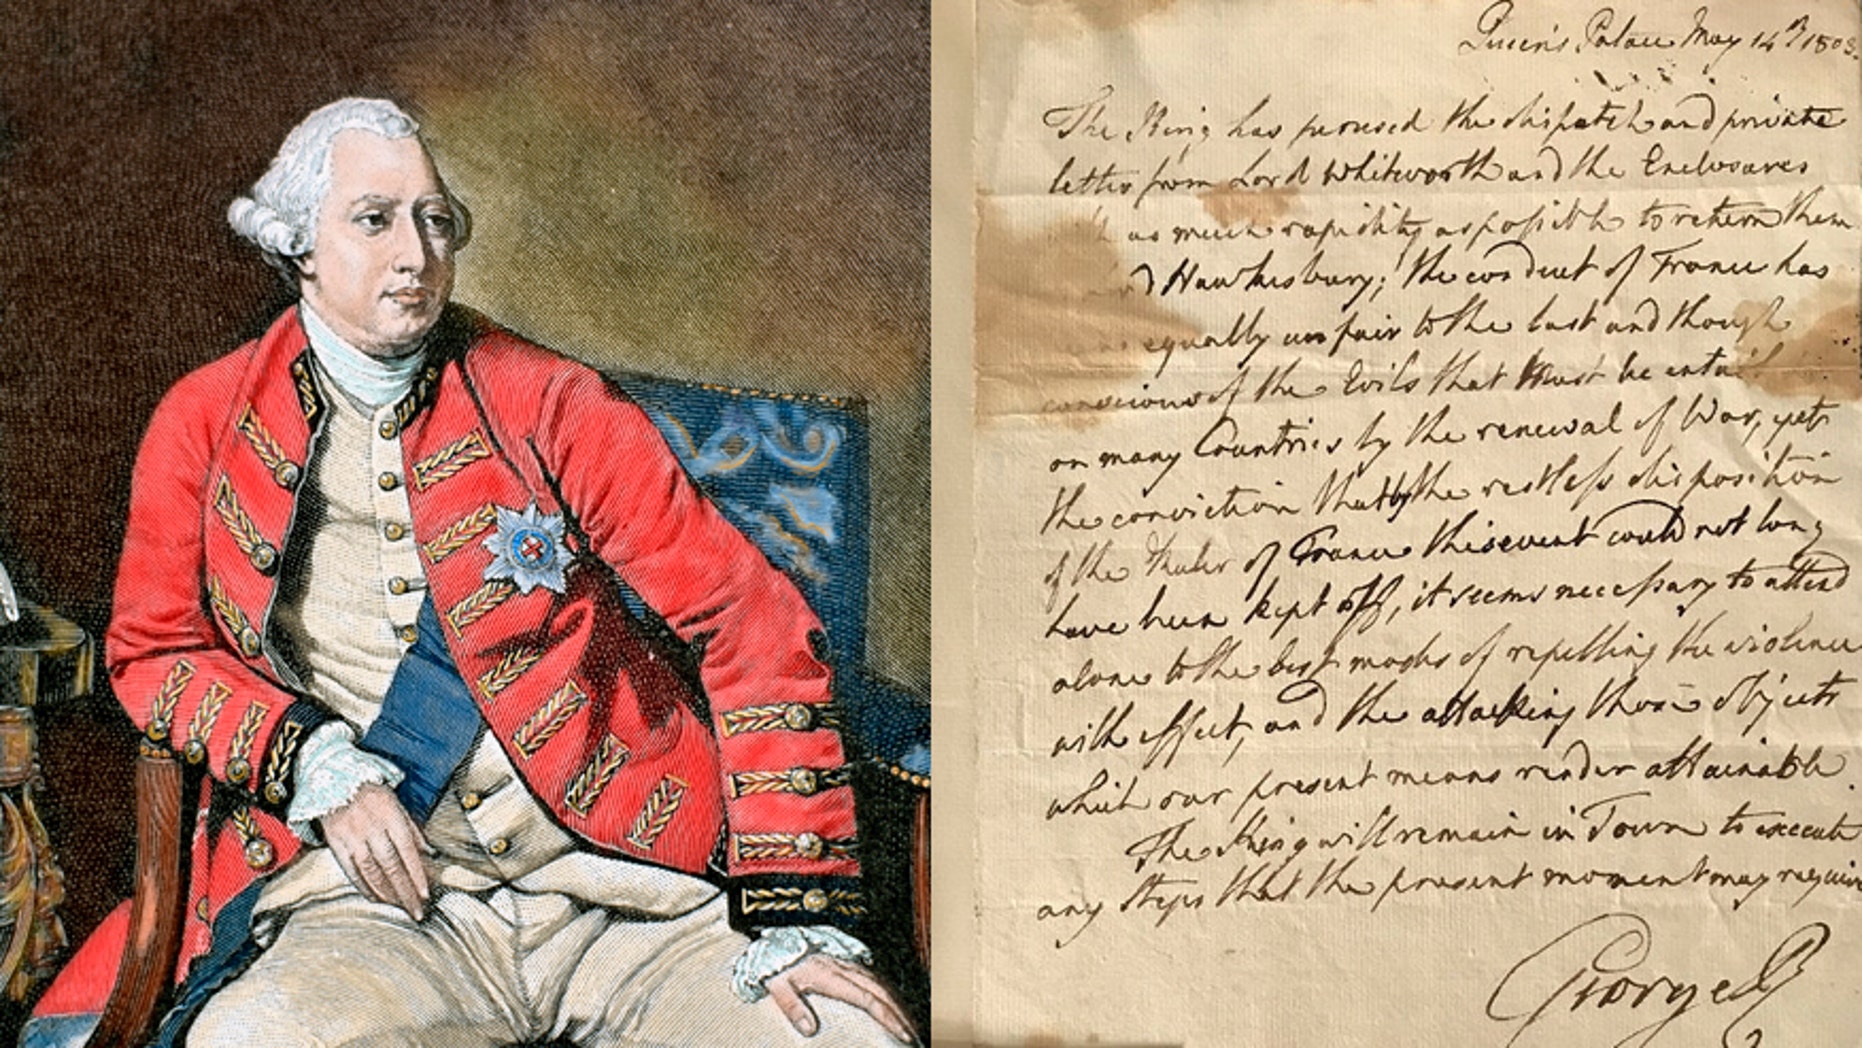 Queen's Palace May 14th 1803.
The King has perused the dispatch and private
letter from Lord Whitworth and the Enclosures
as much rapidity as possible to return them
Hawkesbury; the conduct of France has
equally unfair to the last and though
conscious of the Evils that must be entail
on many Countries by the renewal of War, yet
the conviction that by the restless disposition
of the Ruler of France this event could not long
have been kept off, it seems necessary to attend
alone to the best modes of repelling the violence
with effect, and the attacking those objects
which our present means render attainable.
The King will remain in Town to execute
any steps that the present moment may require
George R